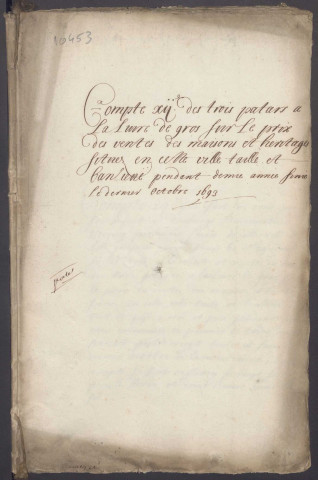 10453
Compte xij.e des trois patars a
La Livre de gros sur Le prix
des ventes des maisons et heritages
scitués en cette ville taille et
banlieue pendant demie année finie
le dernier octobre 1693